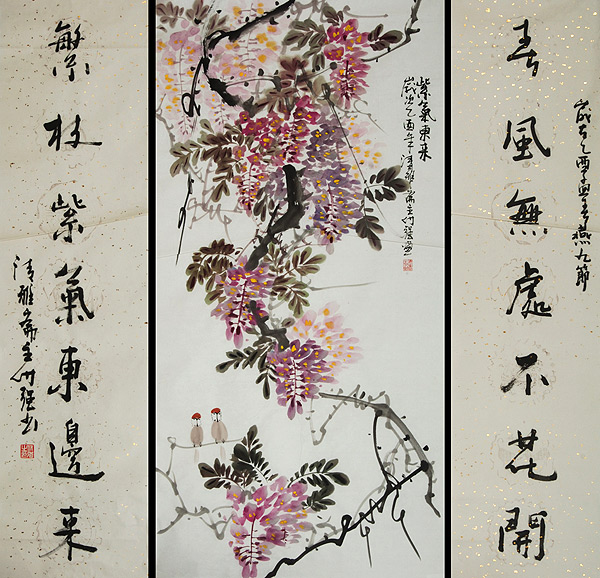 春風無處不花開
歲在乙酉燕九節
紫氣東來
歲次乙酉年清雅齋主
繁枝紫氣東邊来
清雅齋主